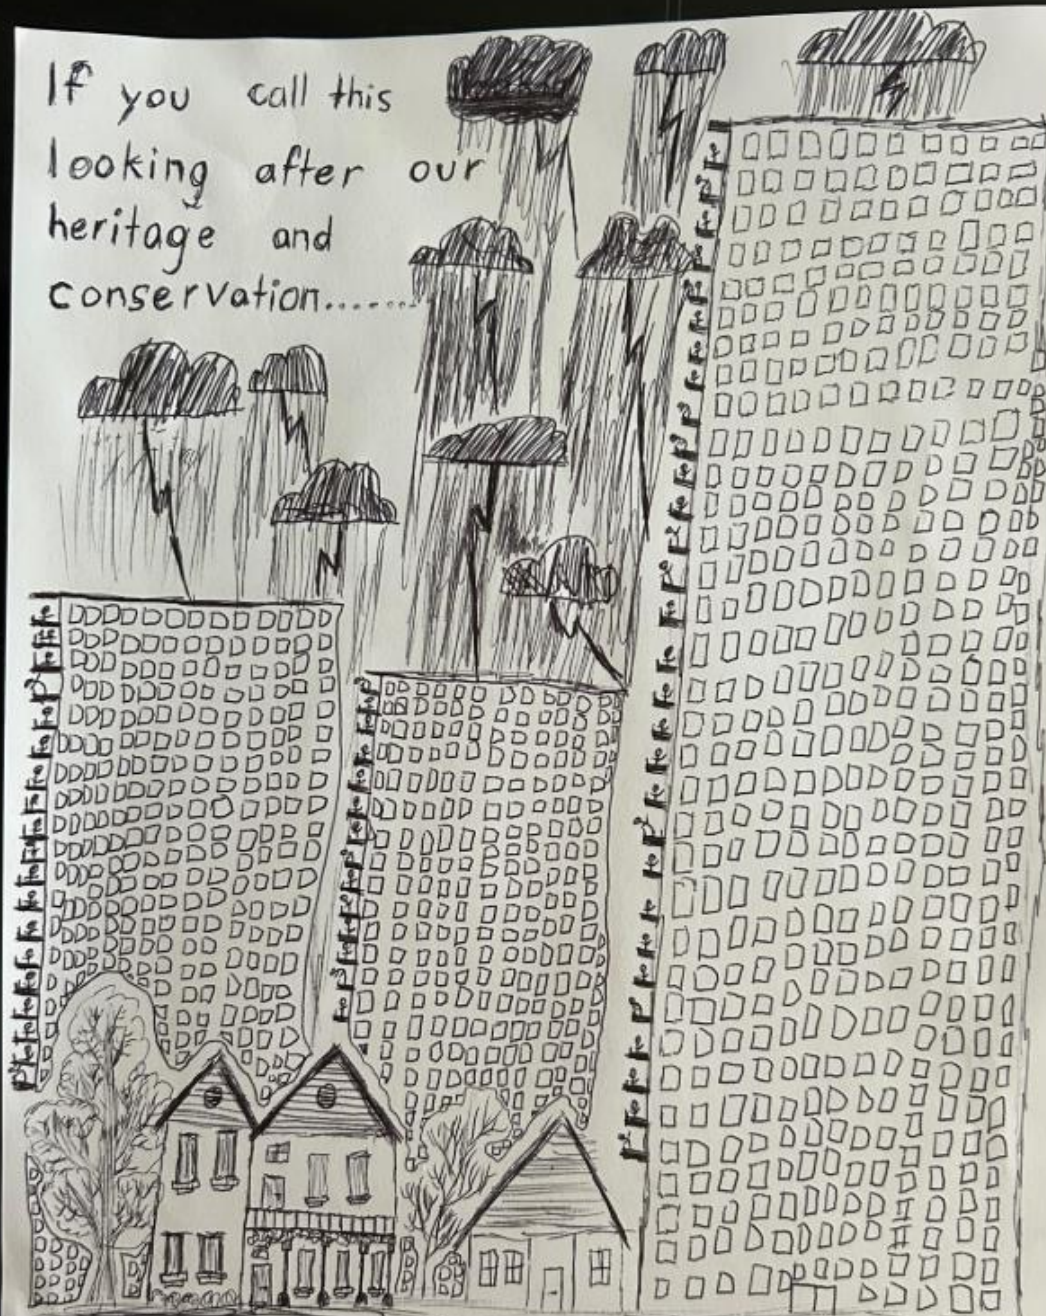 If you call this
looking after our
heritage and
conservation.......